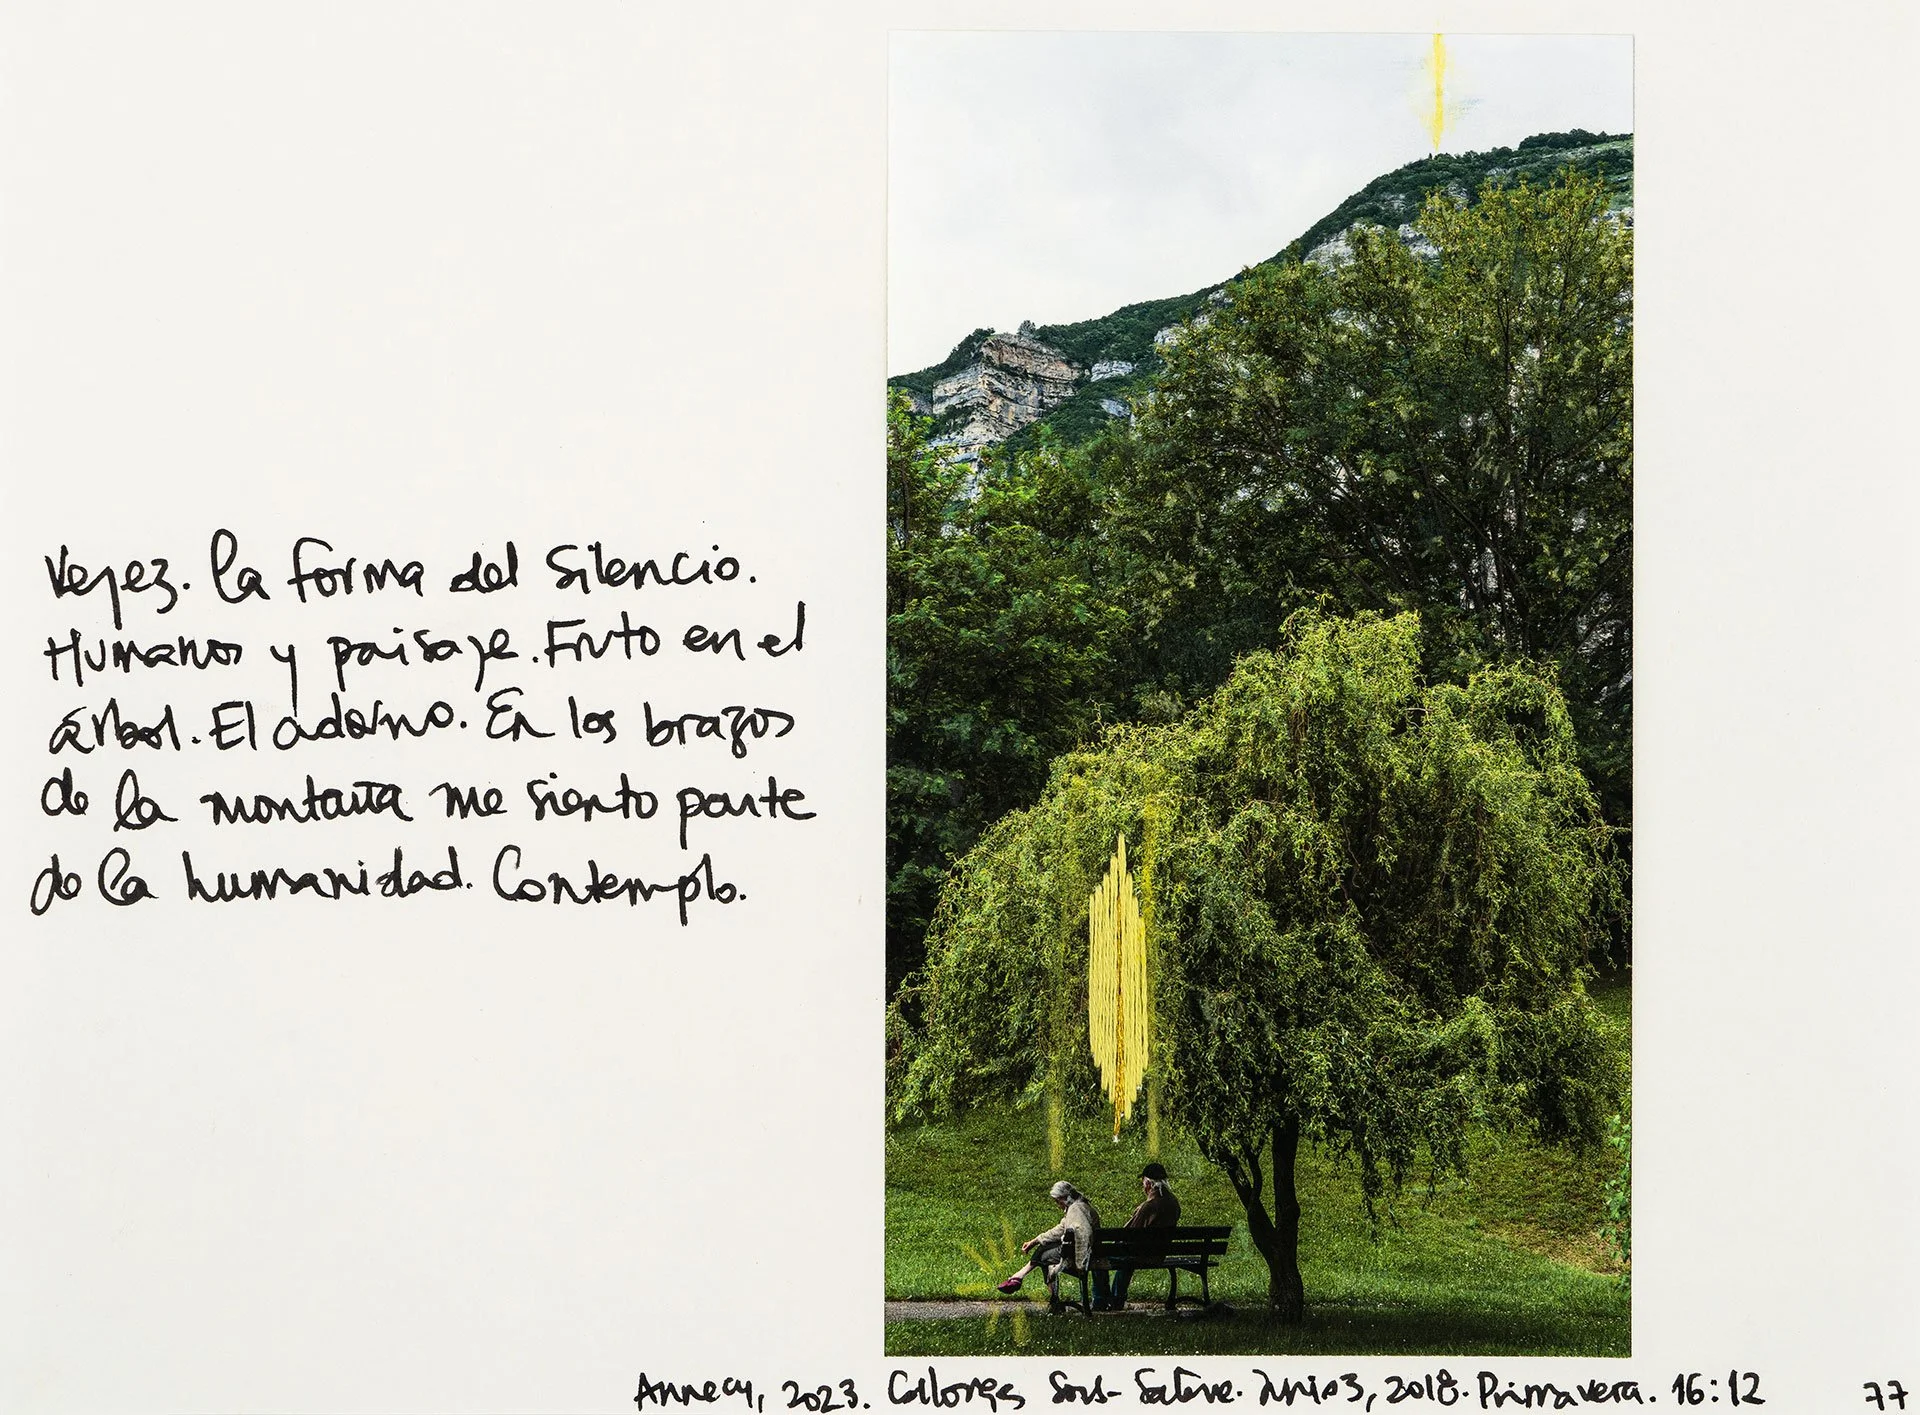 Vejez. La forma del silencio.
Humanos y paisaje. Fruto en el
árbol. El adorno. En los brazos
de la montaña me siento parte
de la humanidad. Contemplo.
Annecy, 2023. Collonges Sous-Salève. Junio 3, 2018. Primavera. 16:12
77